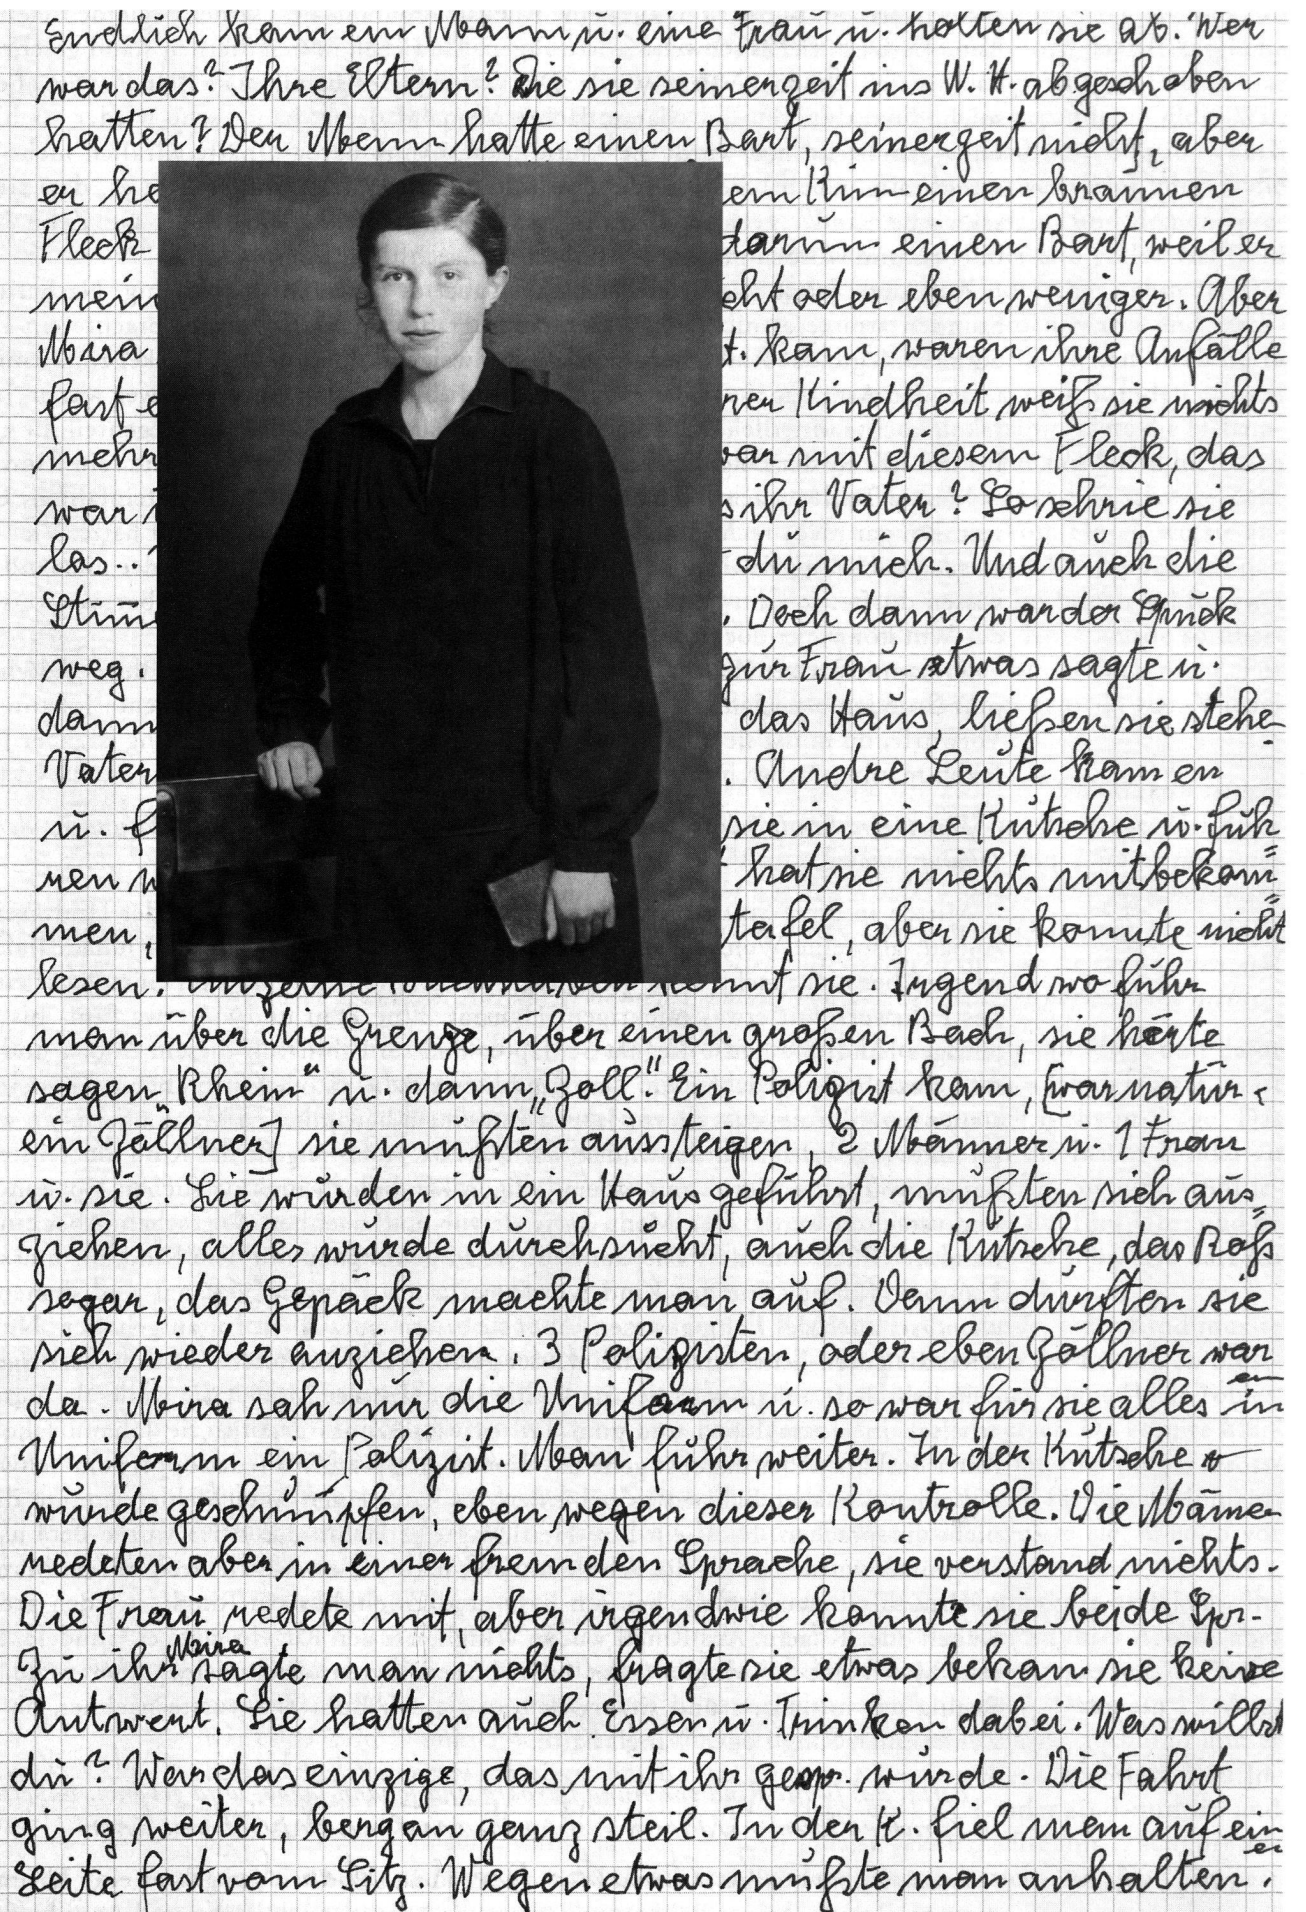 Endlich kam ein Mann u. eine Frau u. holten sie ab. Wer
war das? Ihre Eltern? Die sie seinerzeit ins W. H. abgeschoben
hatten? Der Mann hatte einen Bart, seinerzeit nicht, aber
er em Kinn einen braunen
Fleck darum einen Bart, weil er
mein cht oder eben weniger. Aber
Mira kam, waren ihre Anfälle
fast ner Kindheit weiß sie nichts
mehr war mit diesem Fleck, das
war ihr Vater? So schrie sie
los.. du mich. Und auch die
Stim̄ . Doch dann war der Spuck
weg. zur Frau etwas sagte u.
dann das Haus, ließen sie stehe
Vater . Andre Leute kamen
u. f sie in eine Kutsche u. fuh
ren hat sie nichts mitbekom=
men, tafel, aber sie konnte nicht
lesen. kennt sie. Irgendwo fuhr
man über die Grenze, über einen großen Bach, sie hörte
sagen „Rhein“ u. dann „Zoll“. Ein Polizist kam, [war natür-
ein Zöllner] sie mußten aussteigen, 2 Männer u. 1 Frau
u. sie. Sie wurden in ein Haus geführt, mußten sich aus=
ziehen, alles wurde durchsucht, auch die Kutsche, das Roß
sogar, das Gepäck machte man auf. Dann durften sie
sich wieder anziehen. 3 Polizisten, oder eben Zöllner war
en
da. Mira sah nur die Uniform u. so war für sie alles in
Uniform ein Polizist. Man fuhr weiter. In der Kutsche
wurde geschumpfen, eben wegen dieser Kontrolle. Die Mäner
redeten aber in einer fremden Sprache, sie verstand nichts.
Die Frau redete mit, aber irgendwie konnte sie beide Spr.
Mira
Zu ihr sagte man nichts, fragte sie etwas bekam sie keine
Antwort. Sie hatten auch Essen u. Trinken dabei. Was willst
du? War das einzige, das mit ihr gespr. wurde. Die Fahrt
ging weiter, bergan ganz steil. In der K. fiel man auf ein
er
Seite fast vom Sitz. Wegen etwas mußte man anhalten.